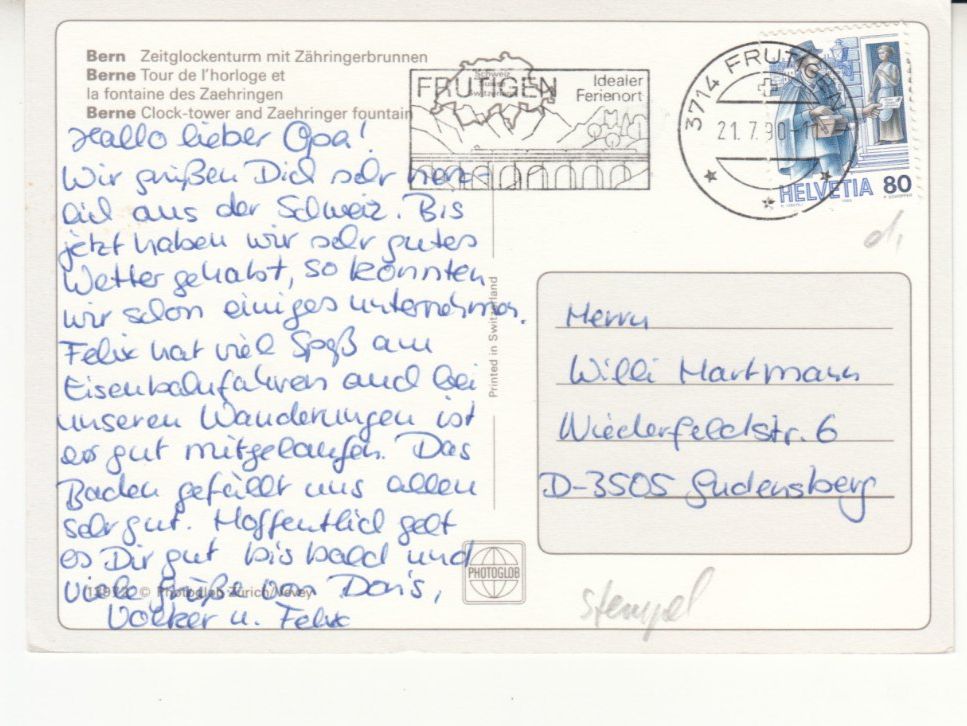 Bern Zeitglockenturm mit Zähringerbrunnen
Berne Tour de l'horloge et
la fontaine des Zaehringen
Berne Clock-tower and Zaehringer fountain
Hallo lieber Opa!
Wir grüßen Dich sehr herz-
lich aus der Schweiz. Bis
jetzt haben wir sehr gutes
Wetter gehabt, so konnten
wir schon einiges unternehmen.
Felix hat viel Spaß am
Eisenbahnfahren und bei
unseren Wanderungen ist
er gut mitgelaufen. Das
Baden gefällt uns allen
sehr gut. Hoffentlich geht
es Dir gut bis bald und
viele Grüße von Doris,
Volker u. Felix
© Photoglob Zürich/Vevey
Printed in Switzerland
PHOTOGLOB
FRUTIGEN
Schweiz
Idealer
Ferienort
3714 FRUTIGEN
21.7.90-11
HELVETIA 80
d,
Herrn
Willi Hartmann
Wiederfeldstr. 6
D-3505 Gudensberg
stempel